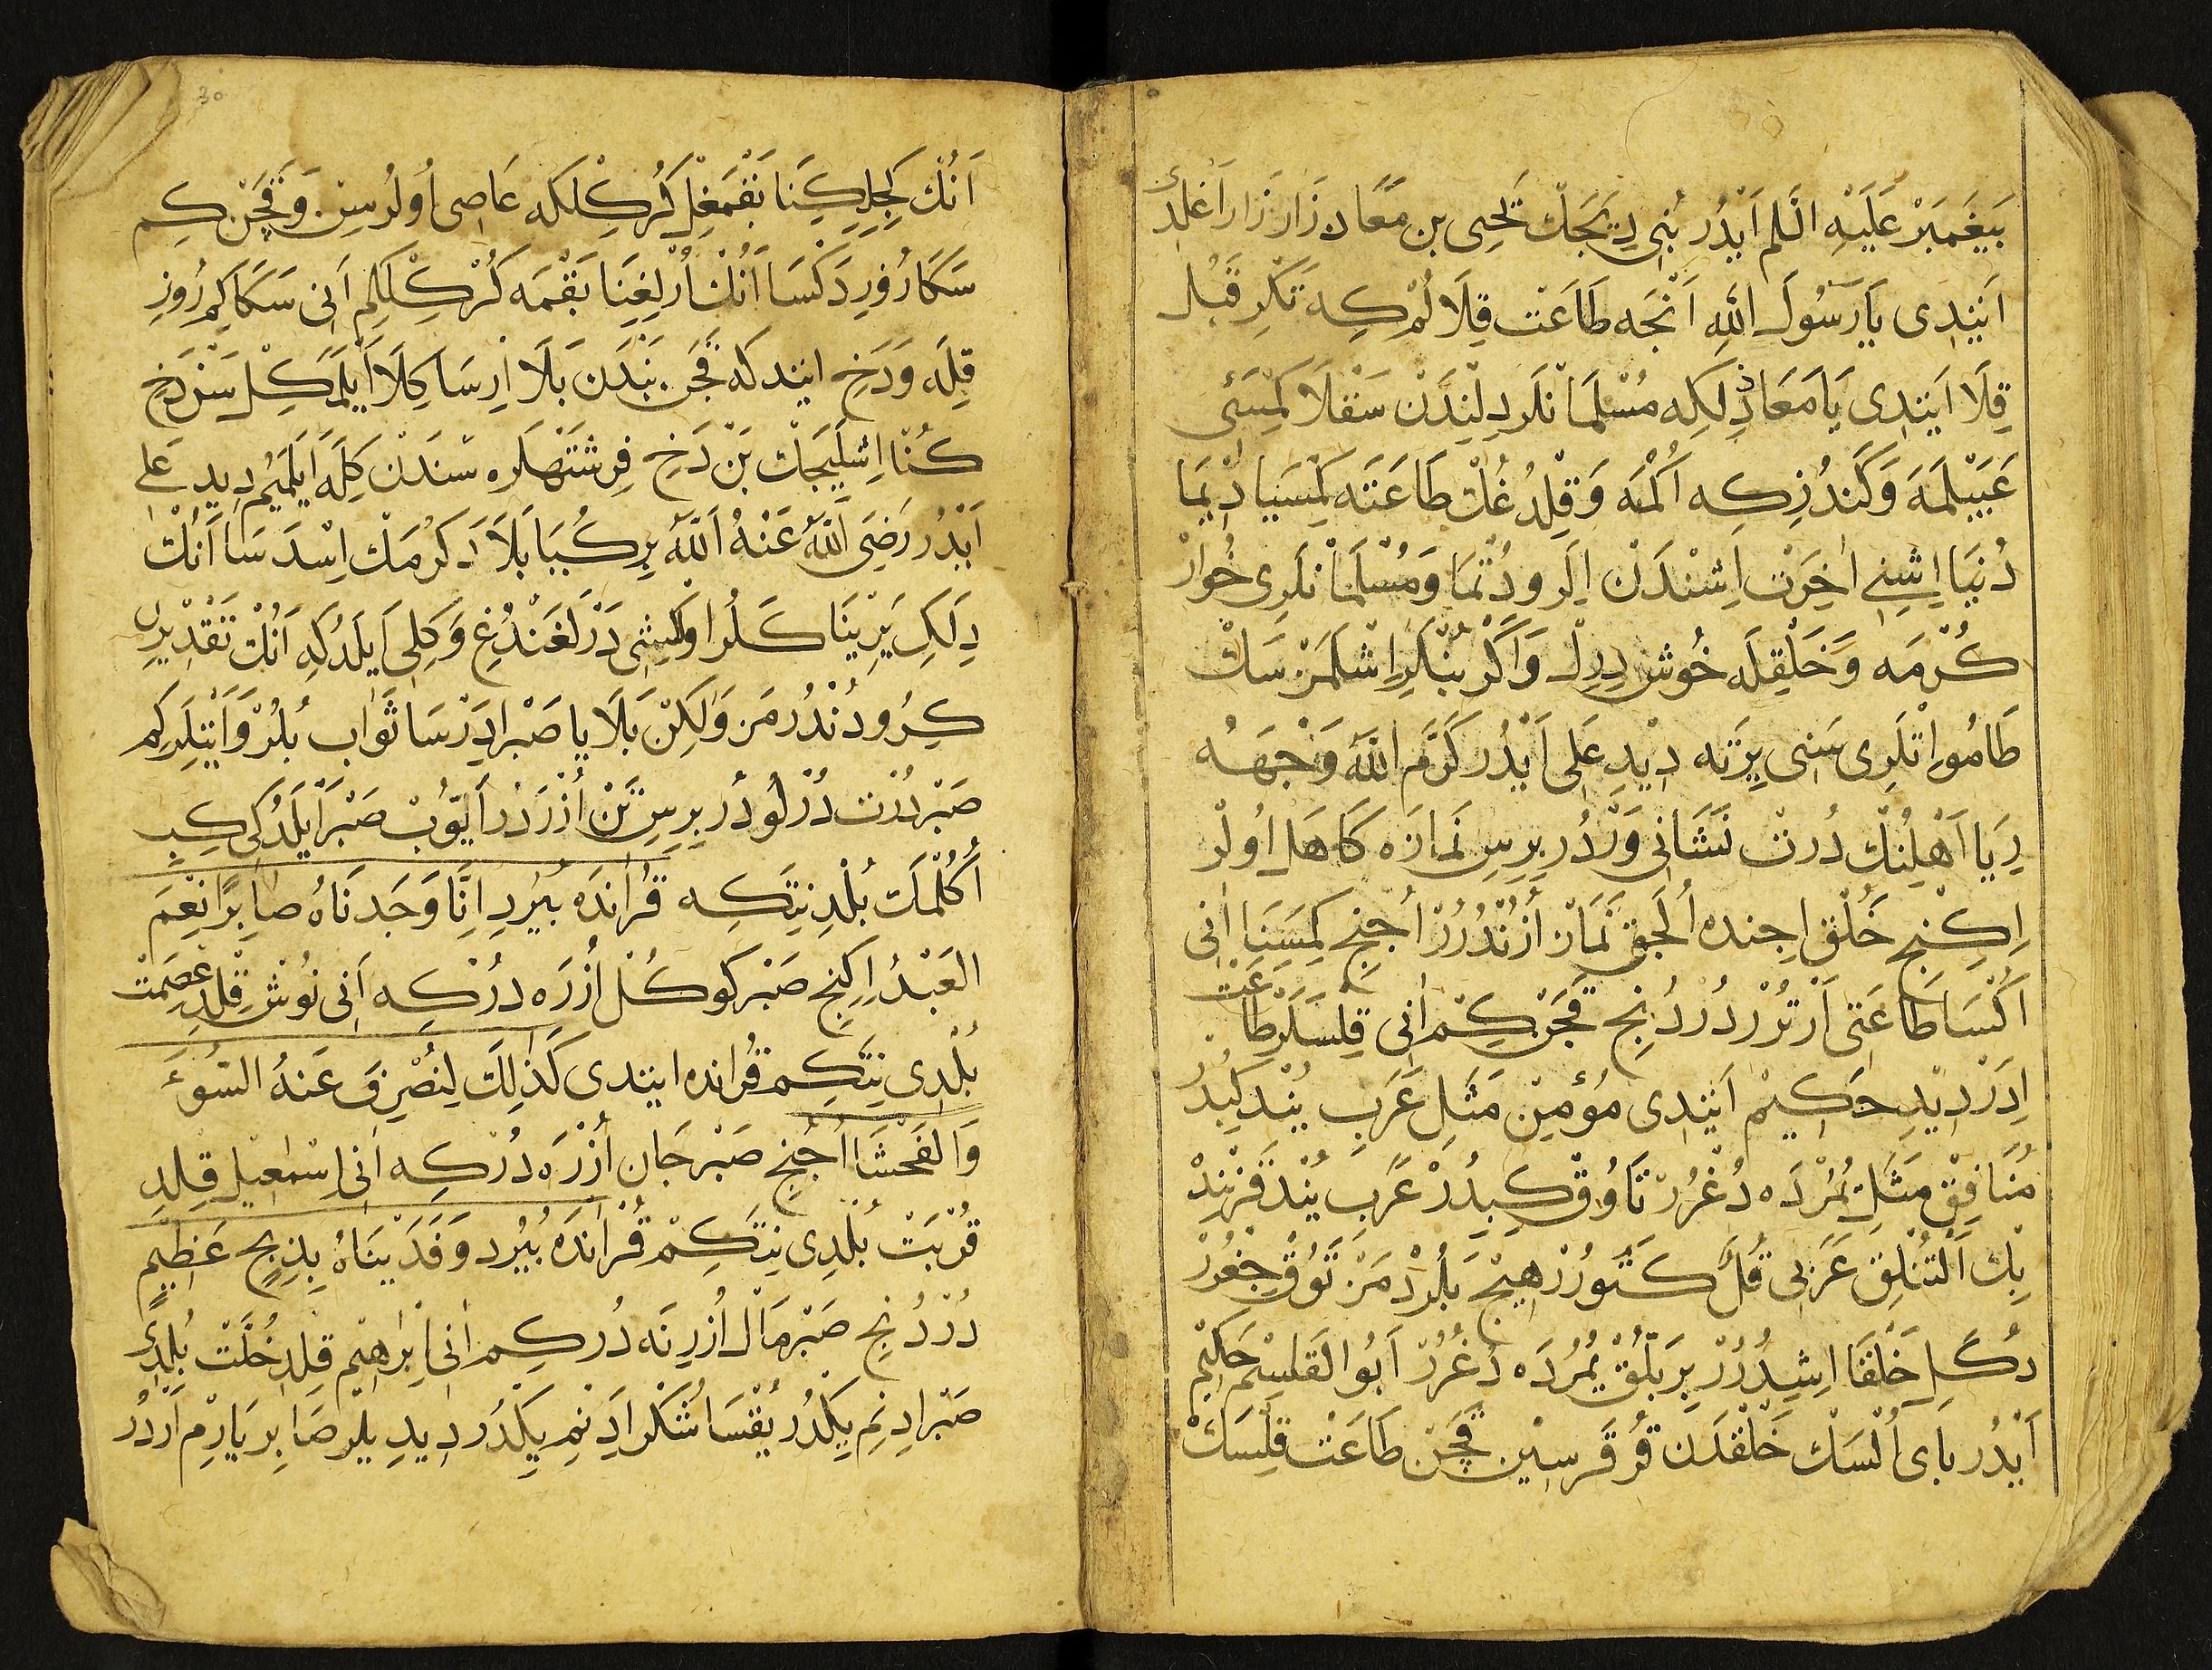 بَيغَمبَرْ عَلَيْهِ السَّلم اَيْدُر بُنِى دِيَجَكْ يَحيى بن مَعَاد زَارزَار اَغلدِى
اَيتدِى يَارَسُولَ اللّٰهِ اَنْجَه طَاعَتْ قِلَالُمْ كِه تَكرِ قَبُل
قِلَا اَيتدِى يَامَعَاذ دِلِكِلَه مُسْلمَانْلَر دِلِيندَنْ سَقْلَا كِمْسَيِى
عَيبْلَمَه وَكَندُزِكِه اُكْمَه وَقِلدُغُكْ طَاعَتَه كِمْسَيَا دِيمَا
دُنيَا اِشِنِى اٰخِرَتْ اِشِنْدَنْ اِلَرو دُتْمَا وَمُسْلمَانْلَرِى خُوَارْ
كُرْمَه وَخَلْقِلَه خُوش دِرِلْ وَاَكَرْ بُنْلَرِ اِشْلَمَزْسَكْ
طَامُو اِتْلَرِى سَنِى يِرتَه دِيْدِ عَلِى اَيْدُر كَرَّمَ اللّٰهُ وَجْهَهُ
رِيَا اَهْلِنُكْ دُرت نَشَانِى وَرْدُر بِرِسِ نَمَازَه كَاهَل اُولْر
اِكِنْجِ خَلْق اِچِنده اُلَجَق نَمَازْ اُزُنْدُرُرْ اُچِنجِ كِمْسَيَنَا اَنِى
اُكْسَا طَاعَتِى اَرْتُرْر دُردُنِجِ قَچَن كِم اَنِى قِلْسَلَرْ طَاعَت
اِدَرْ دِيْدِ حَكِيمْ اَيتدِى مُؤمِنْ مَثَلِ عَرَبِ يُنْدِ كِبِدُر
مُنَافِق مَثَلِ يُمُرْدَه دُغْرُرْ تَاوُق كِبِدُرْ عَرَبِ يُنْد قَرْنِنْدْ
بِكْ اَلْتُنْلِق عَرَبِى قُلُ كَتُورُرْ هِيْچ بَلُرْدمَزْ تَوُق چِغِرُرْ
دُكَلِ خَلْقَا اِشِدُرُرْ بِر بَلُق يُمُرْدَه دُغْرُرْ اَبُو القَاسِمْ حَكِيمْ
اَيْدُر باى اُلْسَكْ خَلْقدَن قُرقَرسِين قَچَنْ طَاعَتْ قِلْسَكْ
اَنُكْ كِجِلِكِنَا بَقْمَغِلْ كُرْكِلِكَه عَاصِى اُولُرسِن وَقَچَنْ كِم
سَكَا رُوزِ دَكْسَا اَنُكْ اُزْلِغِنَا بَقْمَه كُرْكِلْكِلِم اَنِى سَكَا كِم رُوزِ
قِلَه وَدَخِ ايتدكَه قَچَن بَنْدَن بَلَا اِرِسَا كِلَا اَيلَمَكِلْ سَنْ دَخِ
كُنَا اِشْلَيِجَكْ بَنْ دَخِ فِرِشتَهْلَره سَنْدَنْ كِلَه اَيلَمَيُم دِيدِ عَلِى
اَيْدُر رَضِىَ اللّٰهُ عَنْهُ اَللّٰهُ بِر كُشِيَا بَلَا دَكُرْمَكْ اِسْدَسَا اَنُكْ
دِلَكِ يَرِينَا كَلُر اوَلكِشِى دَزْلَغَنْدُغِ وَكِلِى اَيلَدُكِه اَنُكْ تَقْدِيرِن
كِرُو دُنْدُرْمَز وَلٰكِنْ بَلَايا صَبْرِ اِدَرْسَا ثَوَاب بُلُرْ وَاَيتلَر كِم
صَبْر دُرْت دُرْلُودُر بِرِسِ تَنْ اُزْرَدُر اَيُّوب صَبْر اَيلَدُكِى كِبِ
اُكُلْمَك بُلْدِ نِتَكِه قُرْاٰنْدَه بُيُردِ اِنَّا وَجَدْنَاهُ صَابِرًا نِعْمَ
العَبْدُ اِكِنجِ صَبْر كُوكُلْ اُزْرَه دُرْ كِه اَنِى يُوسُفْ قِلْدِ عِصْمَتْ
بُلْدِى نِتَكِم قُرْانده ايتدى كَذٰلِكَ لِنَصْرِفَ عَنْهُ السُّوءَ
وَالفَحْشَا اُچُنجِ صَبْر جَان اُزْرَه دُرْ كِه اَنِى اِسْمٰعِيل قِلْدِ
قُرْبَتْ بُلْدِى نِتَكِمْ قُرْاٰنْدَه بُيُرْد وَفَدَيْنَاهُ بِذِبْحٍ عَظِيْمٍ
دُرْدُنِجِ صَبْر مَال اُزرِنَه دُر كِم اَنِى اِبْرٰهِيْم قِلْدِ خُلَّتْ بُلدِى
صَبْر اِدِنِم يِكْلَدُر يُقْسَا شُكْر اِدَنِم يِكْلَدُر دِيدِيلَر صَابِر يَارِم اَرْدُر